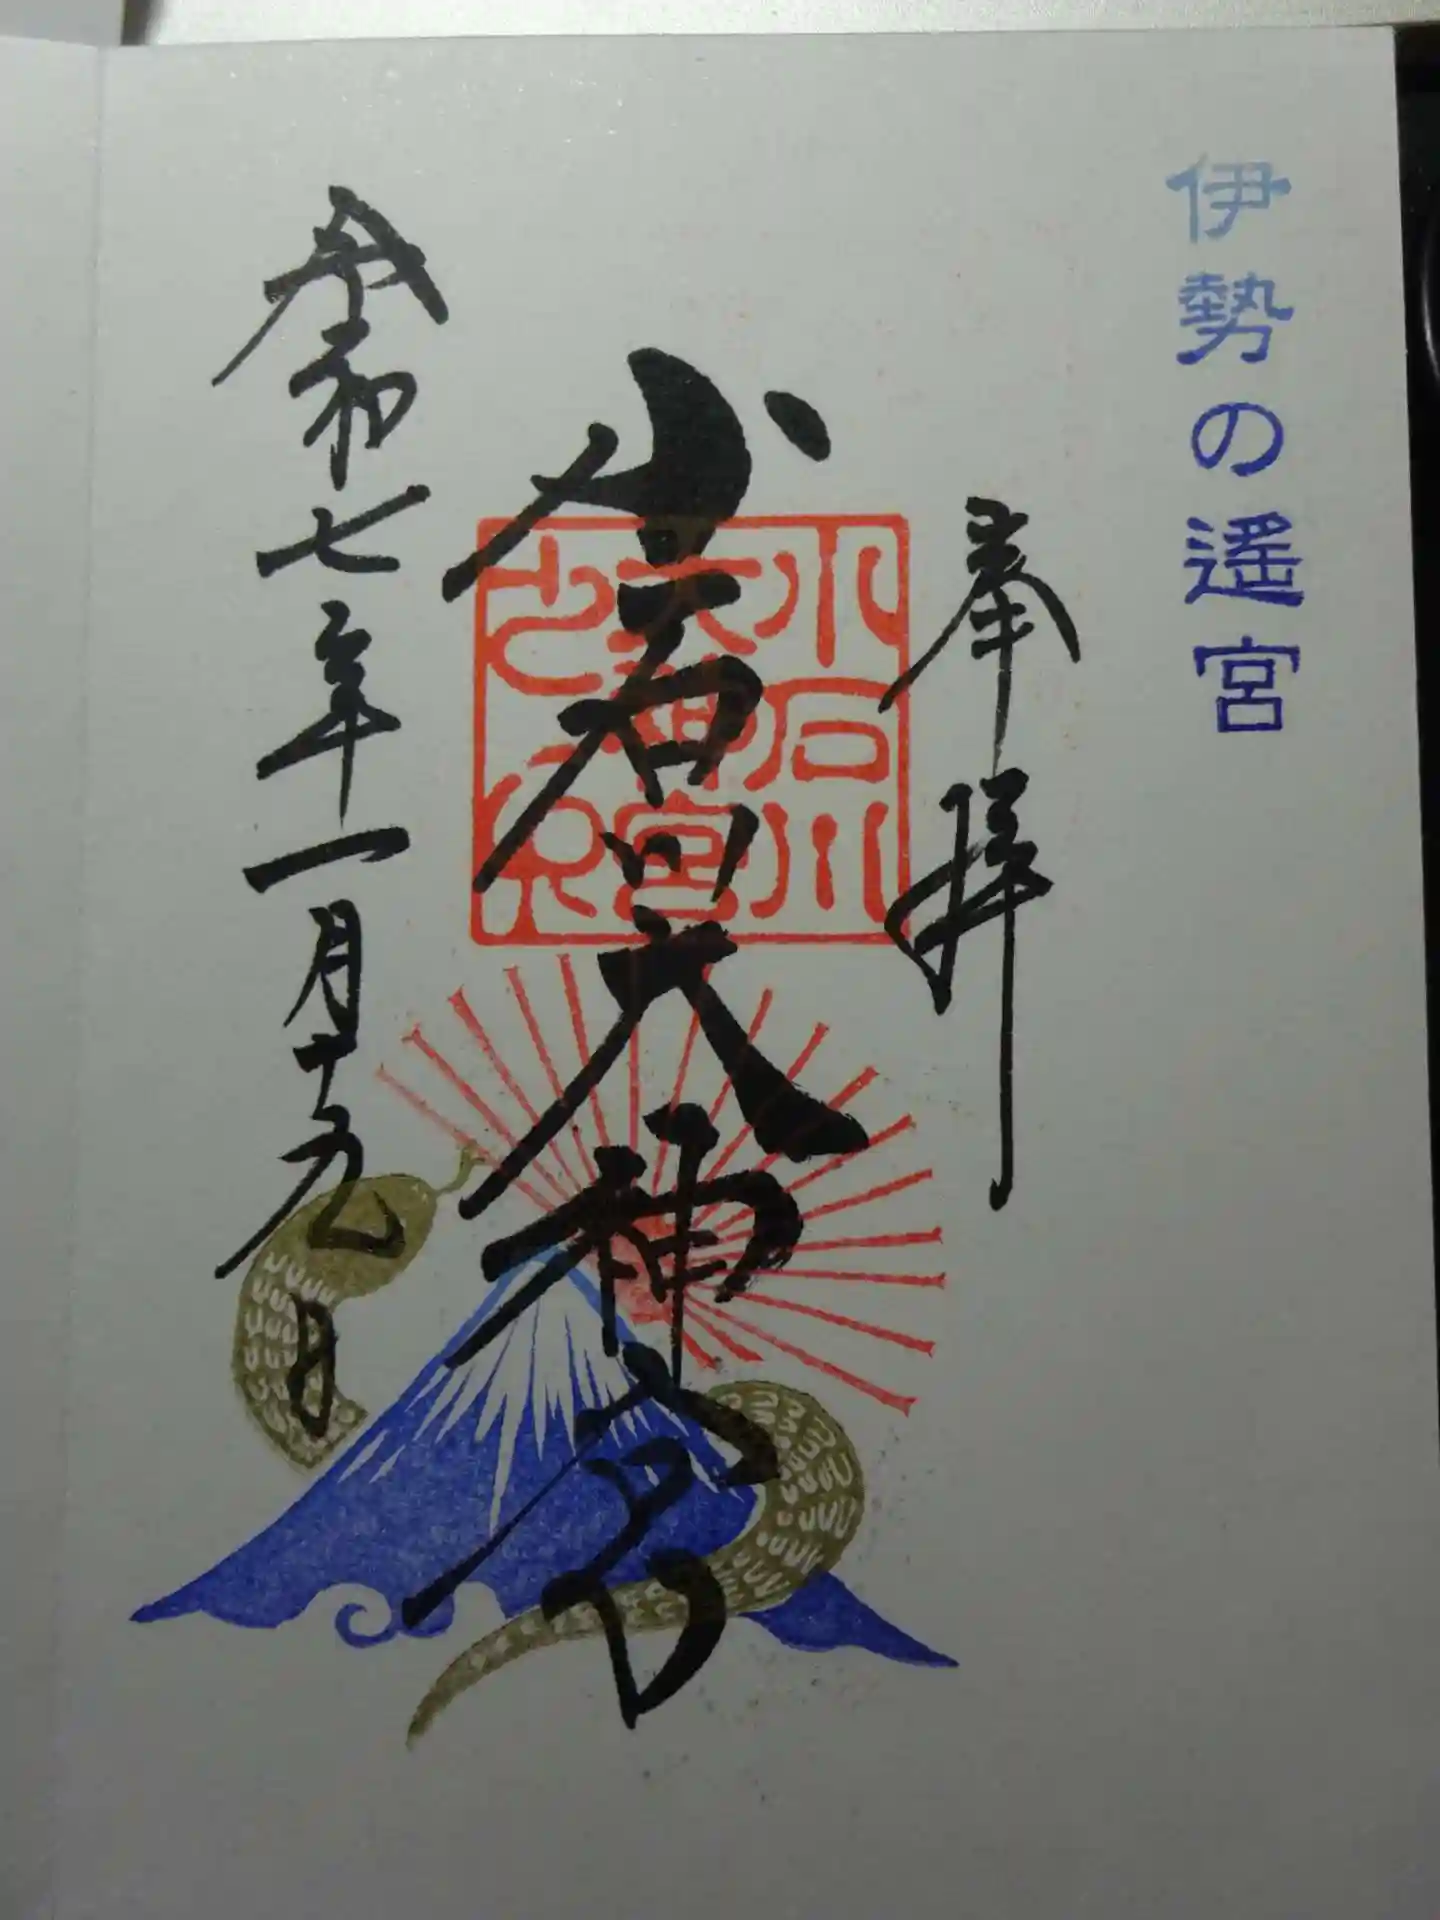 伊勢の遥宮
奉拝
小石川大神宮
小石川
大神宮
之印
令和七年一月十九日